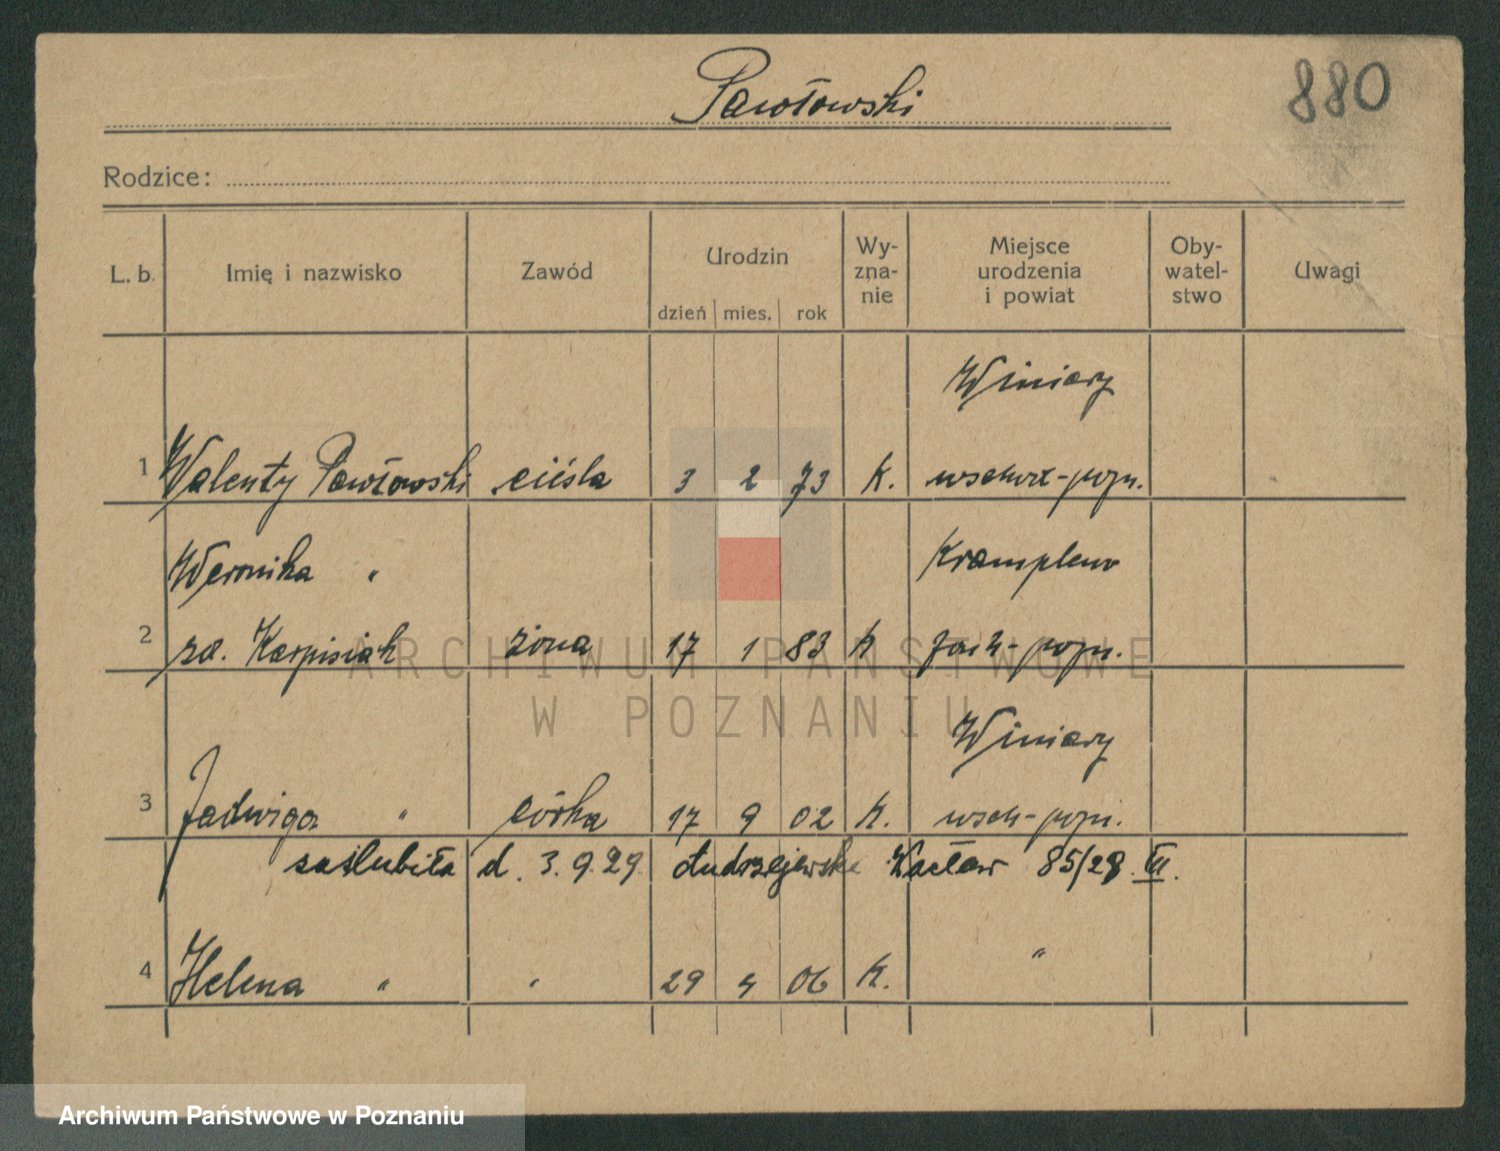 880
Pawłowski
Rodzice:
L. b. Imię i nazwisko Zawód Urodzin dzień mies. rok Wy-zna-nie Miejsce urodzenia i powiat Oby-watel-stwo Uwagi
Winiary
1 Walenty Pawłowski cieśla 3 2 73 K. wschod-pozn.
Weronika " Kramplewo
2 zd. Karpisiak żona 17 1 83 K zach-pozn.
Winiary
3 Jadwiga " córka 17 9 02 K. wsch-pozn.
zaślubiła d. 3.9.29. Andrzejewski Wacław 85/28. III.
"
4 Helena " " 29 4 06 K.
ARCHIWUM PAŃSTWOWE
W POZNANIU
Archiwum Państwowe w Poznaniu